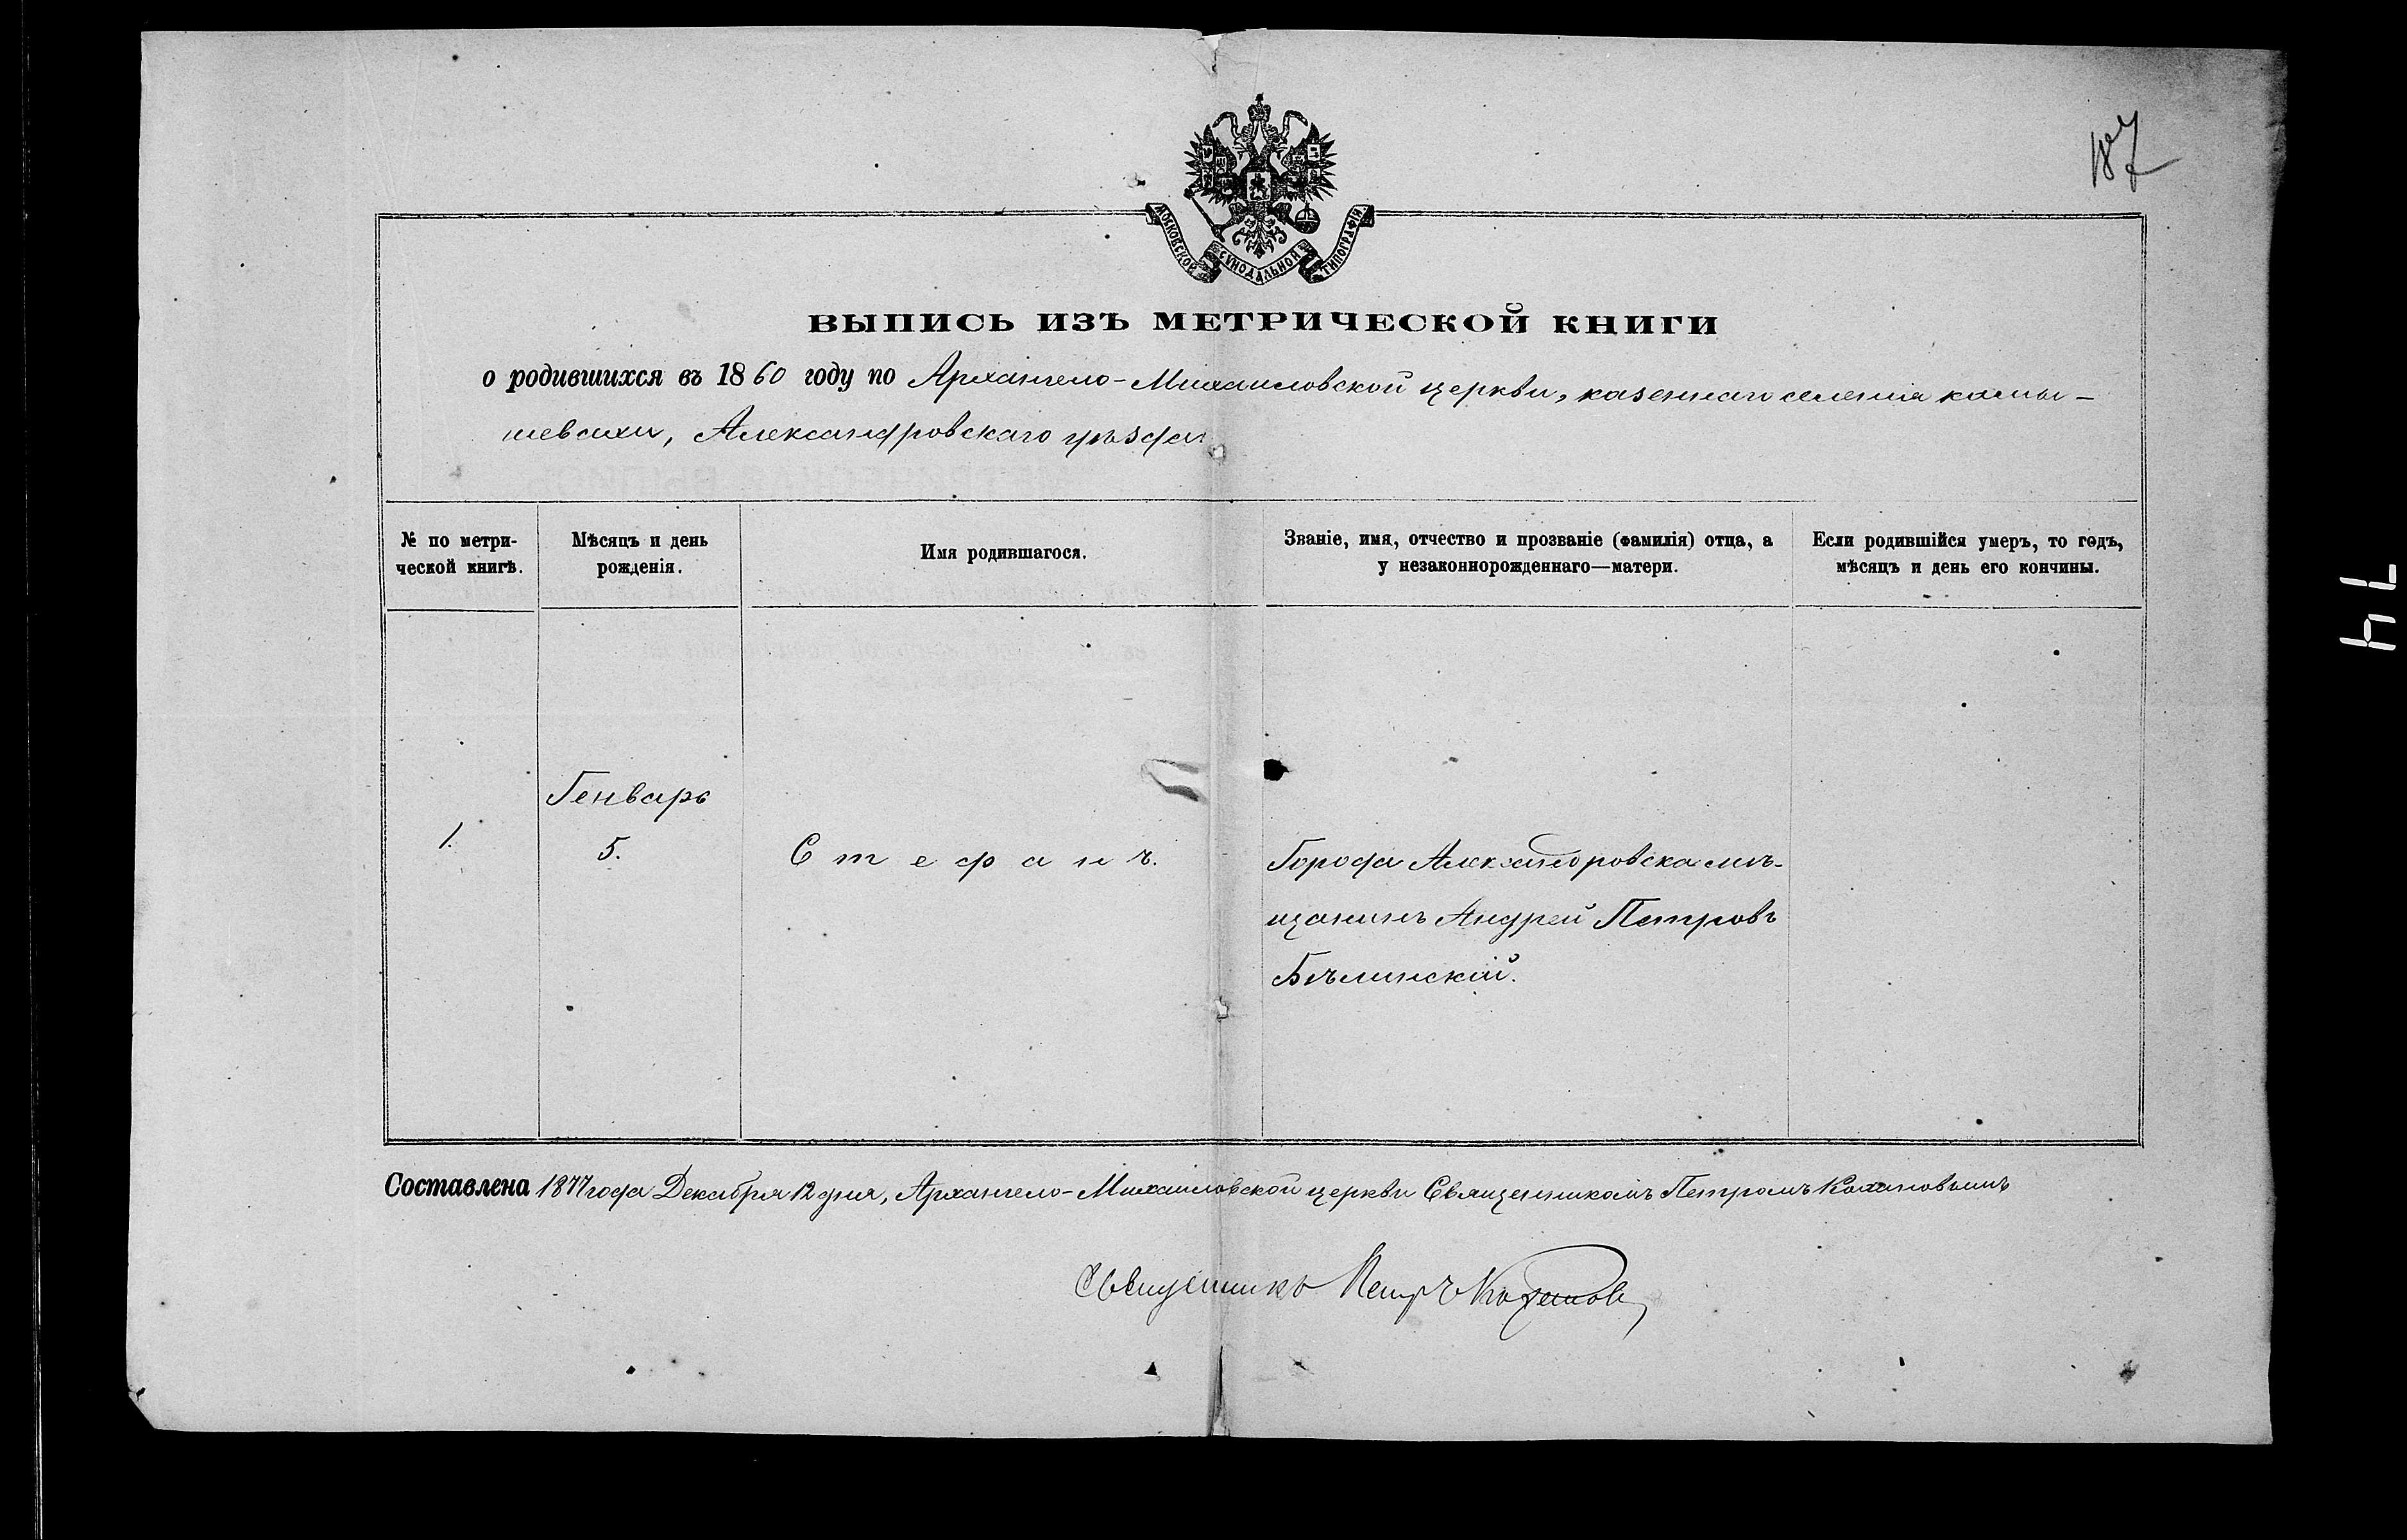 187
МОСКОВСКОЙ СѴНОДАЛЬНОЙ ТИПОГРАФІИ.
ВЫПИСЬ ИЗЪ МЕТРИЧЕСКОЙ КНИГИ
о родившихся въ 1860 году по Архангело-Михайловской церкви, казеннаго селенія камы-
шевахи, Александровскаго уѣзда
№ по метри-
ческой книгѣ.
Мѣсяцъ и день
рожденія.
Имя родившагося.
Званіе, имя, отчество и прозваніе (фамилія) отца, а
у незаконнорожденнаго—матери.
Если родившійся умеръ, то годъ,
мѣсяцъ и день его кончины.
Генварь
1. 5. Стефанъ.
Города Александровска мѣ-
щанинъ Андрей Петровъ
Бѣлинскій.
Составлена 1877 года Декабря 12 дня, Архангело-Михайловской церкви Священникомъ Петромъ Кохановымъ
Священникъ Петръ Кохановъ
74